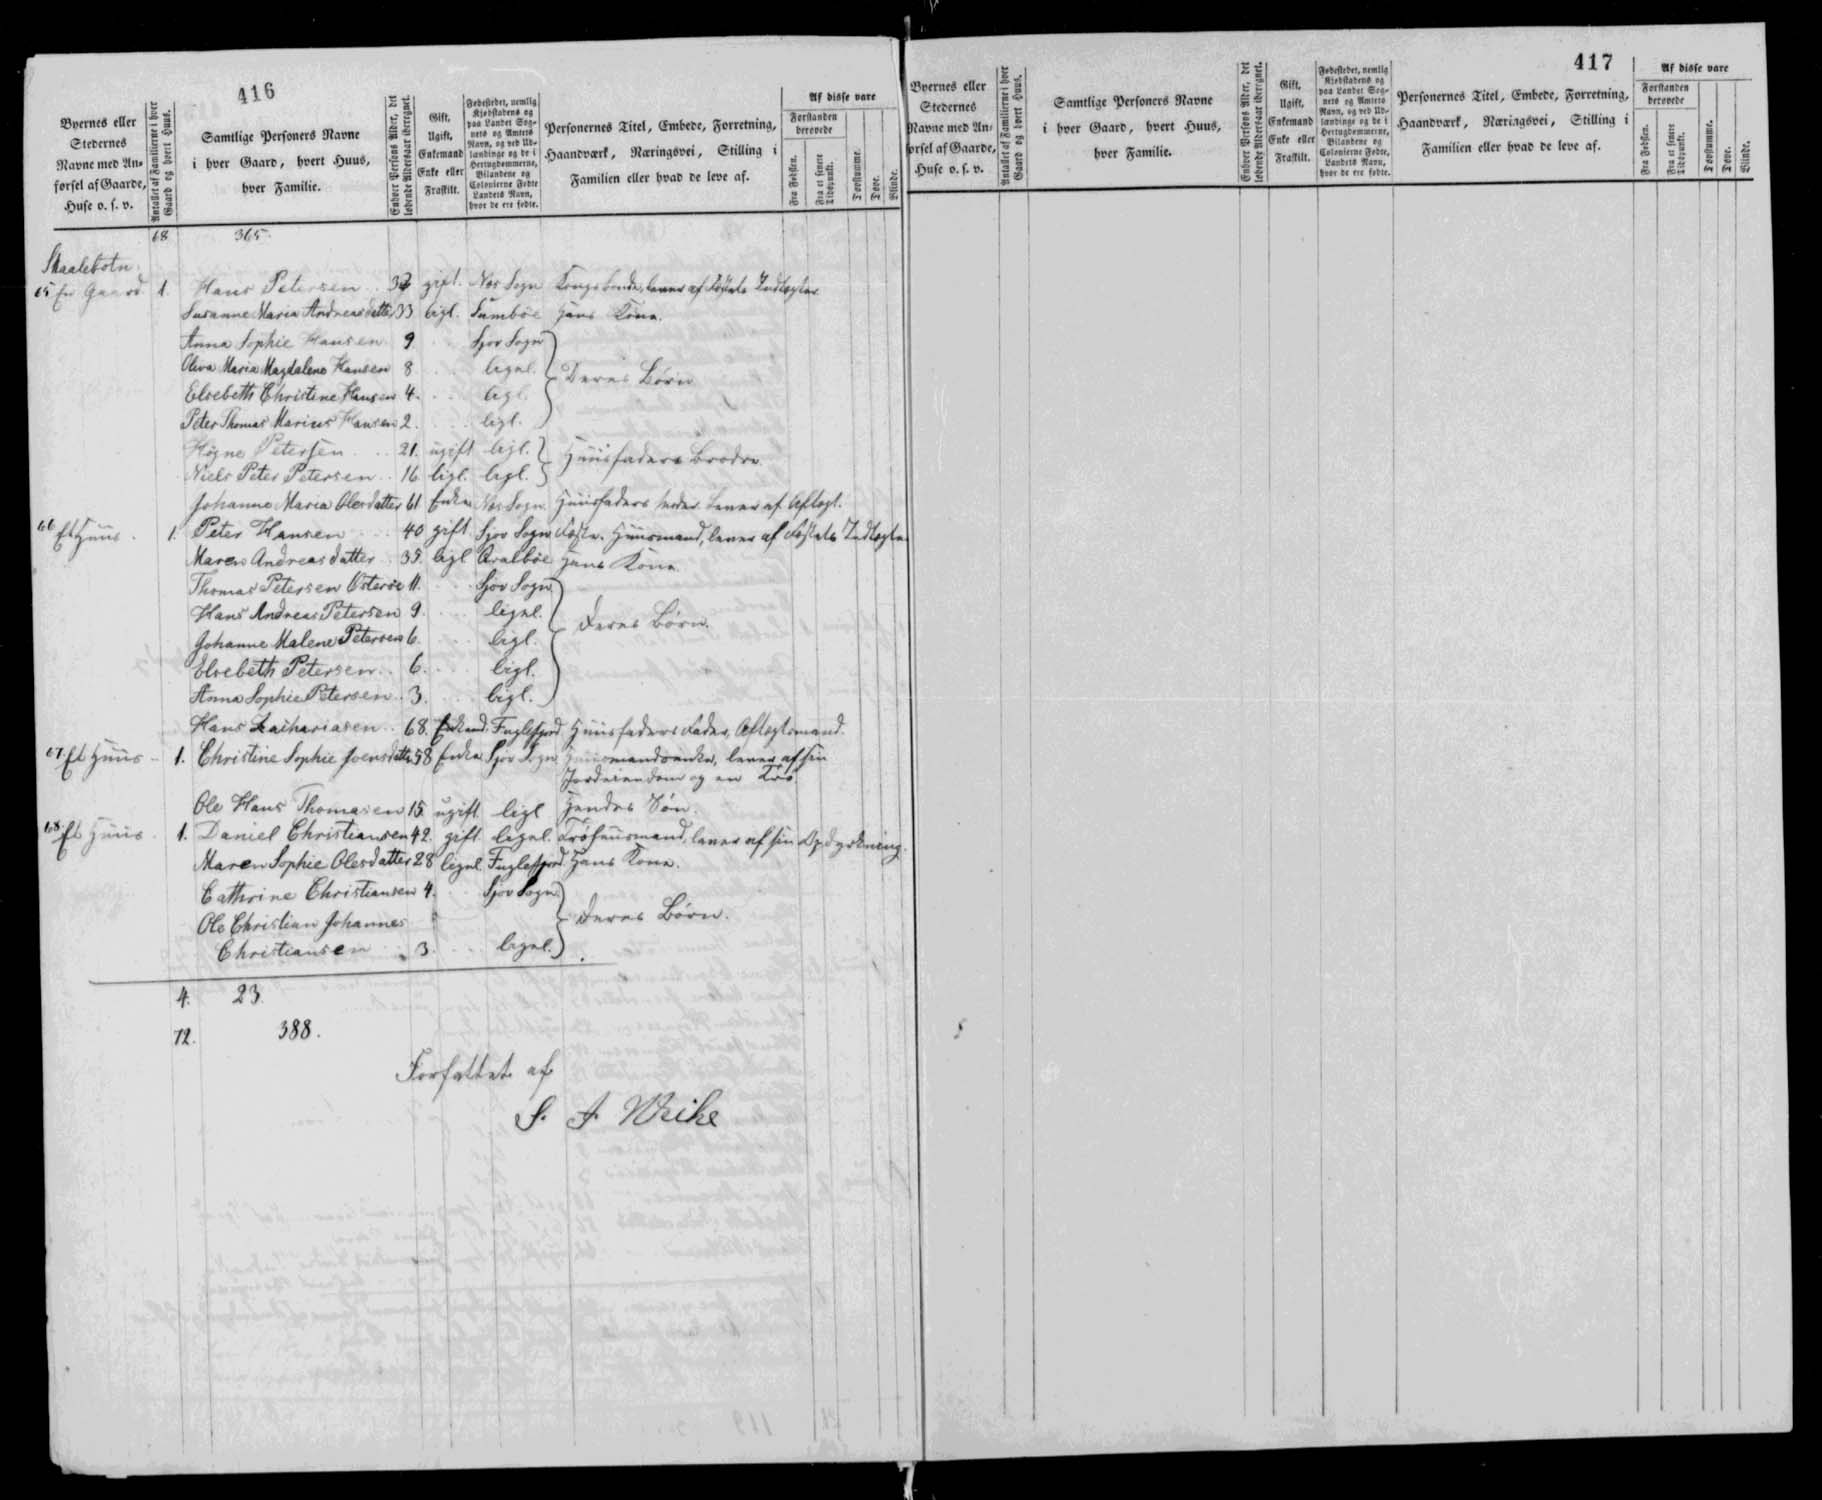 416
Byernes eller Stedernes Navne med Anførsel af Gaarde, Huse o. s. v.
Antallet af Familierne i hver Gaard og hvert Huus.
Samtlige Personers Navne i hver Gaard, hvert Huus, hver Familie.
Enhver Persons Alder, det løbende Aldersaar iberegnet.
Gift, Ugift, Enkemand Enke eller Fraskilt.
Fødestedet, nemlig Kjøbstadens og paa Landet Sognets og Amtets Navn, og ved Udlændinge og de i Hertugdømmerne, Bilandene og Colonierne Fødte Landets Navn, hvor de ere fødte.
Personernes Titel, Embede, Forretning, Haandværk, Næringsvei, Stilling i Familien eller hvad de leve af.
Af disse vare
Forstanden berøvede
Fra Fødslen.
Fra et senere Tidspunkt.
Døvstumme.
Døve.
Blinde.
68 365
Skaalebotn
65 En Gaard 1. Hans Petersen 32 gift. Næs Sogn Kongsbonde, lever af Fæstets Indtægter
Susanne Maria Andreasdatter 33 ligl. Sumbøe Hans Kone.
Anna Sophie Hansen 9 Sjov Sogn
Oliva Maria Magdalene Hansen 8 lignl. Deres Børn
Elsebeth Christine Hansen 4. ligl.
Peter Thomas Marius Hansen 2. ligl.
Høgne Petersen 21. ugift ligl. Huusfaders Brødre.
Niels Peter Petersen 16 ligl. ligl.
Johanne Maria Olesdatter 61 Enke Næs Sogn. Huusfaders Moder. Lever af Aftægt.
66 Et Huus. 1. Peter Hansen 40 gift Sjov Sogn Fæste-Huusmand, lever af Fæstets Indtægter
Maren Andreasdatter 35. ligl Qvalbøe Hans Kone.
Thomas Petersen Østerøe 11. Sjov Sogn
Hans Andreas Petersen 9. lignl.
Johanne Malene Petersen 6. ligl. Deres Børn.
Elsebeth Petersen 6. ligl.
Anna Sophie Petersen 3. ligl.
Hans Zachariasen 68. Enkemd. Fuglefjord Huusfaders Fader, Aftægtsmand.
67 Et Huus 1. Christine Sophie Joensdatter 58 Enke Sjov Sogn Huusmandsenke, lever af sin
Jordeiendom og en Trø
Ole Hans Thomasen 15. ugift ligl Hendes Søn.
68 Et Huus 1. Daniel Christiansen 42. gift. lignl. Trøhuusmand, lever af sin Opdyrkning.
Maren Sophie Olesdatter 28 lignl. Fuglefjord Hans Kone.
Cathrine Christiansen 4. Sjov Sogn
Ole Christian Johannes Deres Børn.
Christiansen 3. lignl.
4. 23.
72. 388.
Forfattet af
S. J. Weihe
417
Byernes eller Stedernes Navne med Anførsel af Gaarde, Huse o. s. v.
Antallet af Familierne i hver Gaard og hvert Huus.
Samtlige Personers Navne i hver Gaard, hvert Huus, hver Familie.
Enhver Persons Alder, det løbende Aldersaar iberegnet.
Gift, Ugift, Enkemand Enke eller Fraskilt.
Fødestedet, nemlig Kjøbstadens og paa Landet Sognets og Amtets Navn, og ved Udlændinge og de i Hertugdømmerne, Bilandene og Colonierne Fødte, Landets Navn, hvor de ere fødte.
Personernes Titel, Embede, Forretning, Haandværk, Næringsvei, Stilling i Familien eller hvad de leve af.
Af disse vare
Forstanden berøvede
Fra Fødslen.
Fra et senere Tidspunkt.
Døvstumme.
Døve.
Blinde.